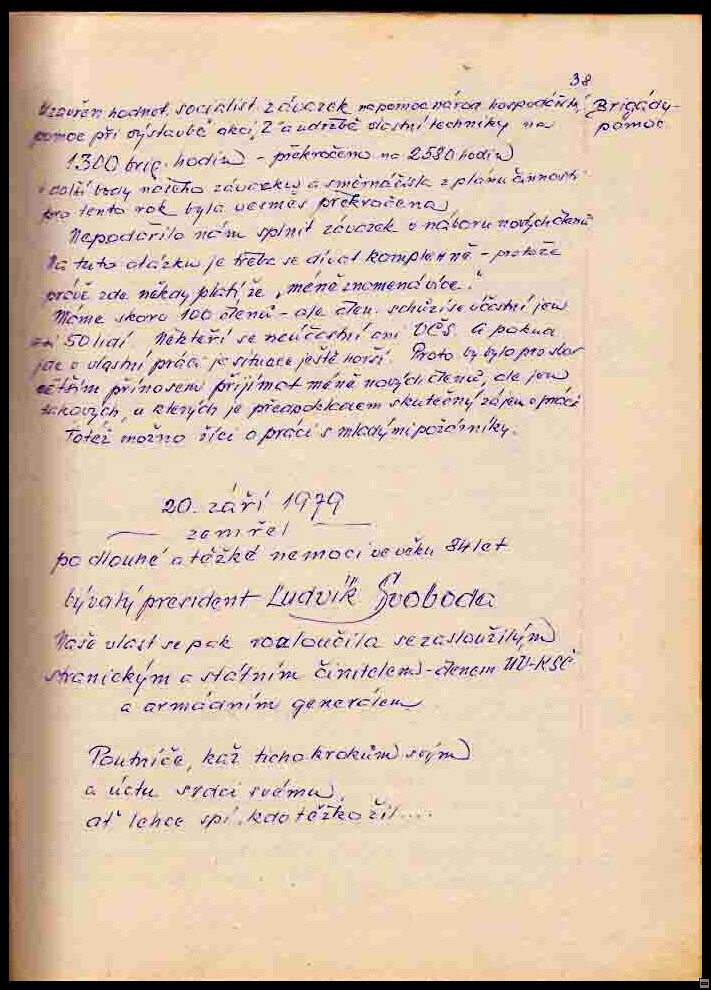 38
Uzavřen hodnot. socialist. závazek na pomoc národ. hospodářství, Brigády-
pomoc při výstavbě akcí „Z“ a udržbě vlastní techniky na pomoc
1300 brig. hodin - překročeno na 2580 hodin
další body našeho závazku a směrná čísla z plánu činnosti
pro tento rok byla vesměs překročena
Nepodařilo nám splnit závazek v náboru nových členů
Na tuto otázku je třeba se dívat komplexně - protože
právě zde někdy platí že „méně znamená více.“
Máme skoro 100 členů - ale člen. schůzí se účastní jen
50 lidí. Někteří se neúčastní ani VČS. A pokud
jde o vlastní práci je situace ještě horší. Proto by bylo pro sbor
větším přínosem přijímat méně nových členů, ale jen
takových, u kterých je předpokladem skutečný zájem o práci
Totéž možno říci o práci s mladými požárníky.
20. září 1979
zemřel
po dlouhé a těžké nemoci ve věku 84 let
bývalý president Ludvík Svoboda
Naše vlast se pak rozloučila se zasloužilým
stranickým a státním činitelem - členem ÚV-KSČ
a armádním generálem
Poutníče, kaž ticho krokům svým
a úctu srdci svému,
ať lehce spí, kdo těžko žil....